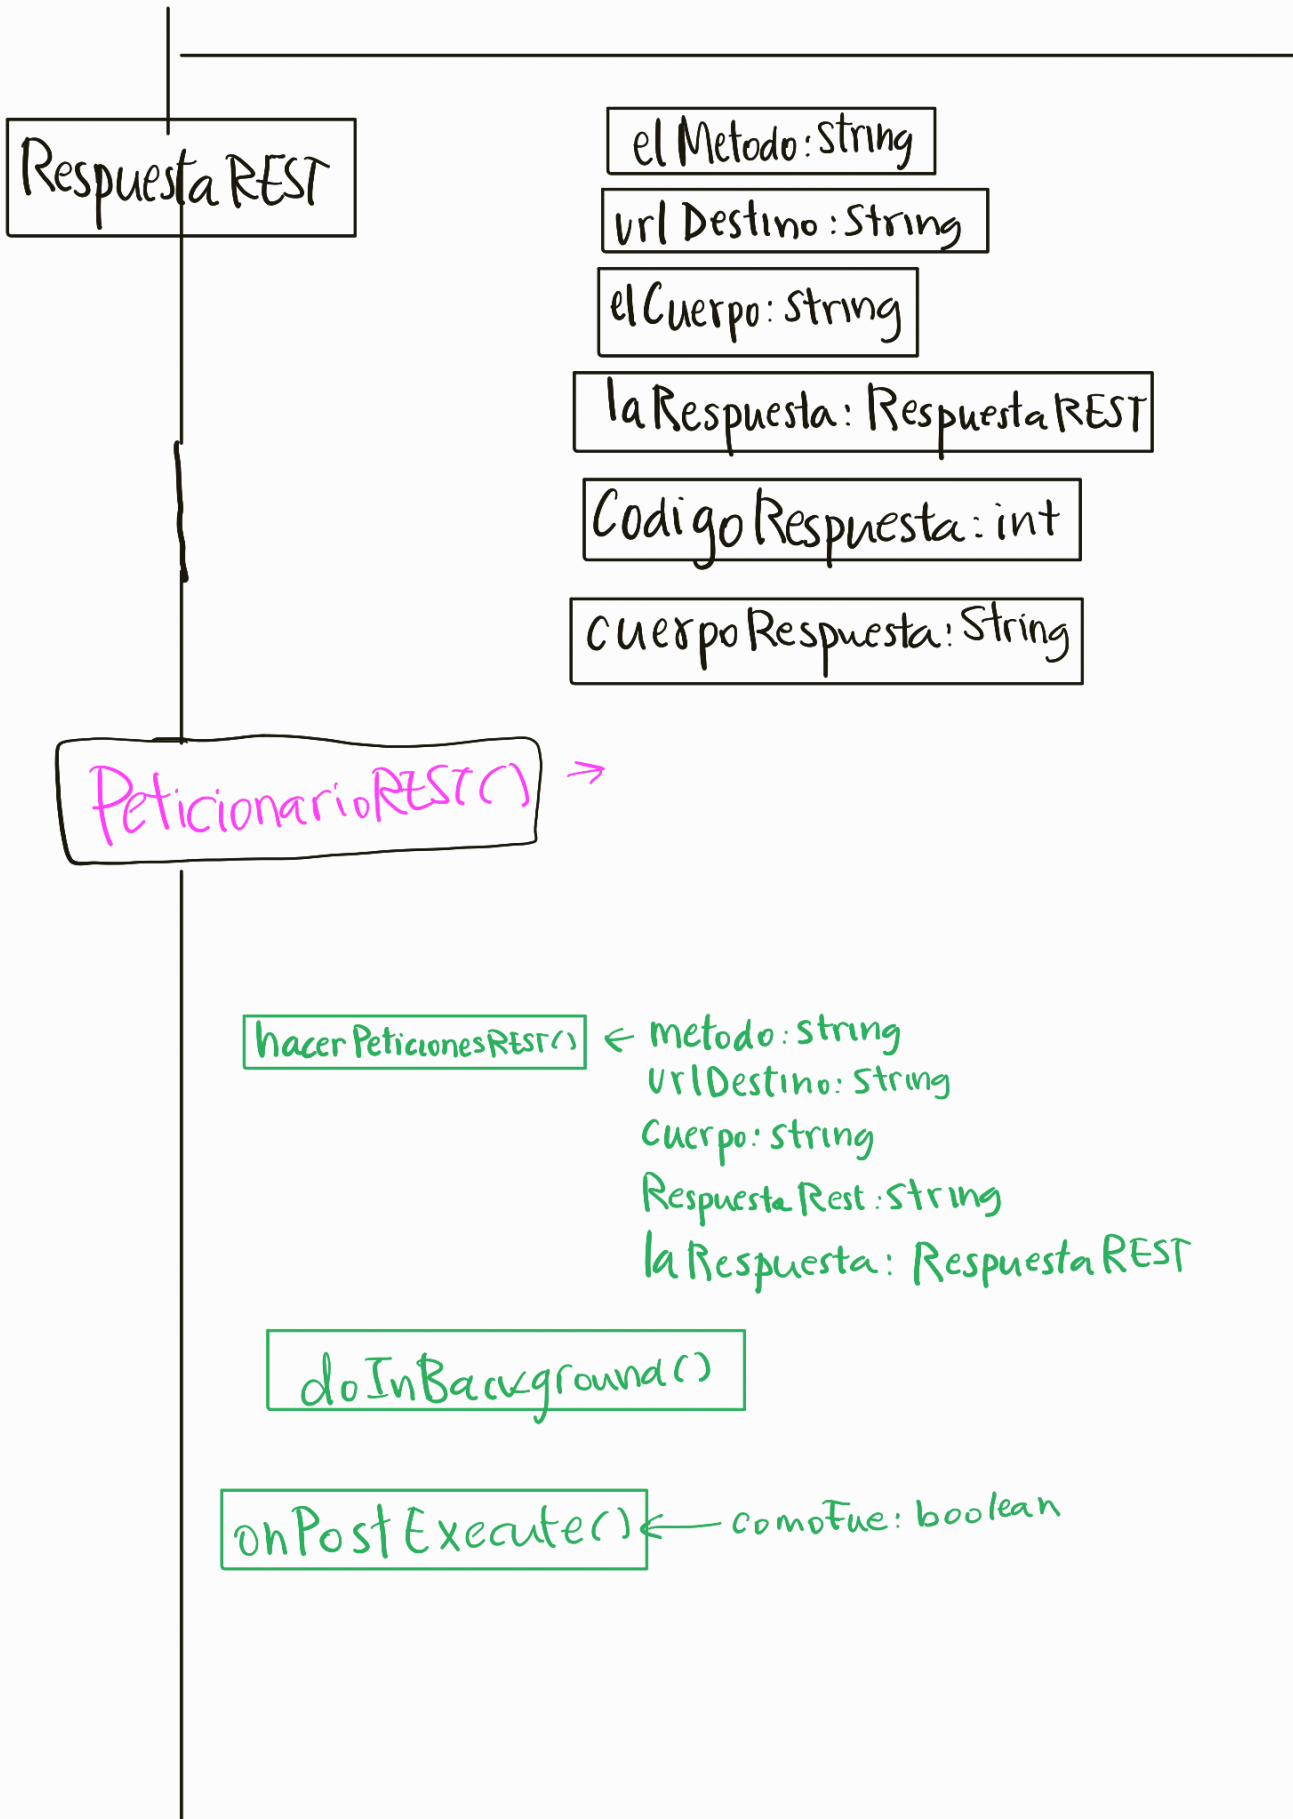 RespuestaREST
elMetodo: String
urlDestino: String
elCuerpo: String
laRespuesta: RespuestaREST
CodigoRespuesta: int
cuerpoRespuesta: String
PeticionarioREST() →
hacerPeticionesREST() ← metodo: String
urlDestino: String
Cuerpo: String
RespuestaRest: String
laRespuesta: RespuestaREST
doInBackground()
onPostExecute() ← comoFue: boolean